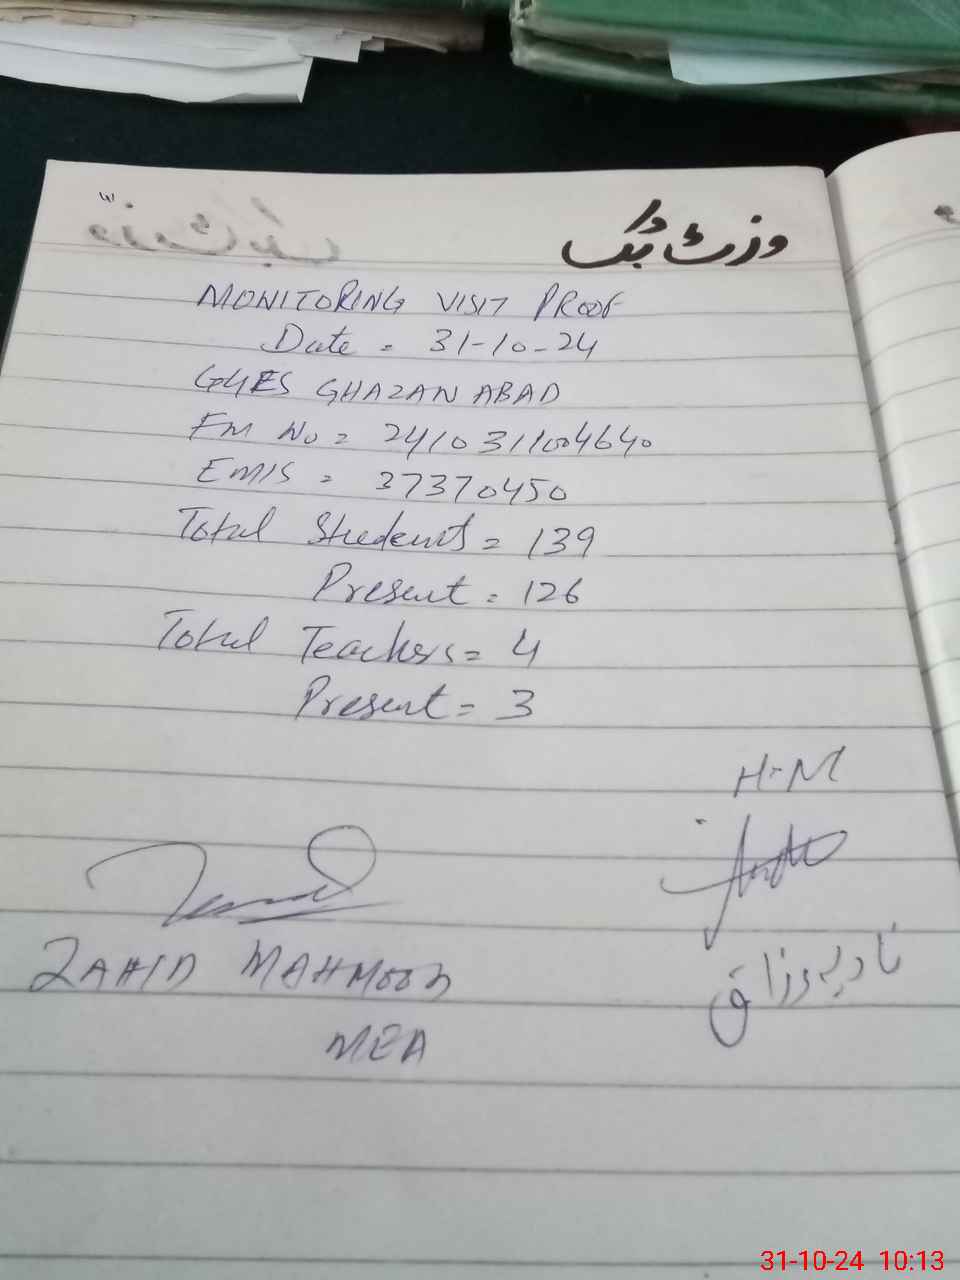 وزٹ بک
MONITORING VISIT PROOF
Date = 31-10-24
GHAZAN ABAD
Fm No = 2410311004640
EMIS = 37370450
Total Students = 139
Present = 126
Total Teachers = 4
Present = 3
H-M
ZAHID MAHMOOD
نادیہ رزاق
MEA
31-10-24 10:13